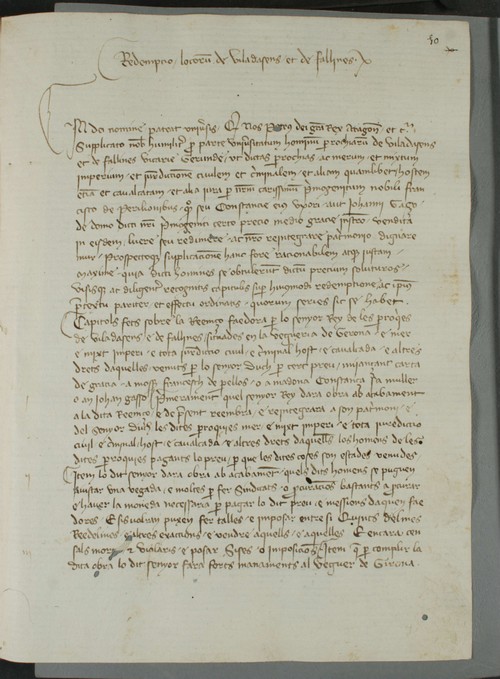 50
Redemptio locorũ de viladasens et de fallines
In dei nomine pateat univ̄sis Q̄ Nos Petrus dei grā Rex Aragon̄ et cᵃ
Supplicato nob̄ humilit̄ p̱ parte univ̄sitatum hominũ p̱rochiarũ de viladasens
et de fallines vicarie Gerunde ut dictas p̱rochias ac merum et mixtum
imperium et iur̄dictionē civilem et c̄minalem et aliam quamlibet hostem
etiā et cavalcatam et alia iura p̱ nr̄m carissimũ p̄mogenitum nobili fran
cisco de Perillionibus seu Constancie eius uxori aut Johanni Gago
de domo dicti nr̄i p̄mogeniti certo precio medio gracie instro vendita
in eisdem luere seu redimere ac nr̄o reintegrare patrimonio dignare
mur Prospectoq̨ supplicacione hanc fore racionabilem atq̨ iustam
maxime quia dicti homines se obtulerunt dictũ precium soluturos
visisq̨ ac diligent̄ recognitis capitulis sup̱ huiusmodi redemptione ac ip̄ius
p̄textu pariter et effectu ordinatis quorum series sic se habet
Capitols fets sobre la Reemço faedora p̱ lo senyor Rey de les p̱roq̄es
de viladasens e de fallines situades en la vegueria de Gerona e mer
e mixt imperi e tota iur̄dictio civil e c̄minal host e cavalcada e altres
drets daquelles venuts p̱ lo senyor duch p̱ cert preu mijancant carta
de gracia a mossȩ̄ francesch de pellos o a madona Constança sa muller
o an johan gasso Primerament quel senyor Rey dara obra ab acabament
a la dita Reemço e de p̄sent reembra e reintegrara a son patrimoni e
del senyor duch les dites p̱roquies mer e mixt imperi e tota iurẽdictio
civil e c̄minal host e cavalcada e altres drets daquells los homens de les
dites p̱roquies pagants lo preu p̱ que les dites coses son estades venudes
Item lo dit senyor dara obra ab acabamēt quels dits homens se puguen
aiustar una vegada e moltes p̱ fer Sindicats o p̱curacios bastants a p̱curar
e haver la moneda necessaria p̱ pagar lo dit preu e messions daquen fae
dores E si s volran puxen fer talles e imposar entre si
Reedelmes e altres exaccions e vendre aquells e aquelles E encara cen
sals morts e violaris e posar sises o imposicions Item q̄ p̱ complir la
dita obra lo dit senyor fara forts manaments al veguer de Girona